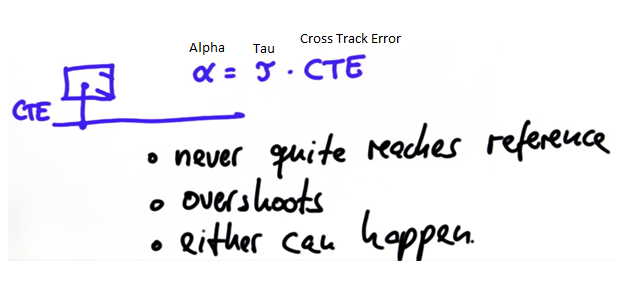 Alpha Tau Cross Track Error
α = τ · CTE
CTE
• never quite reaches reference
• overshoots
• either can happen.